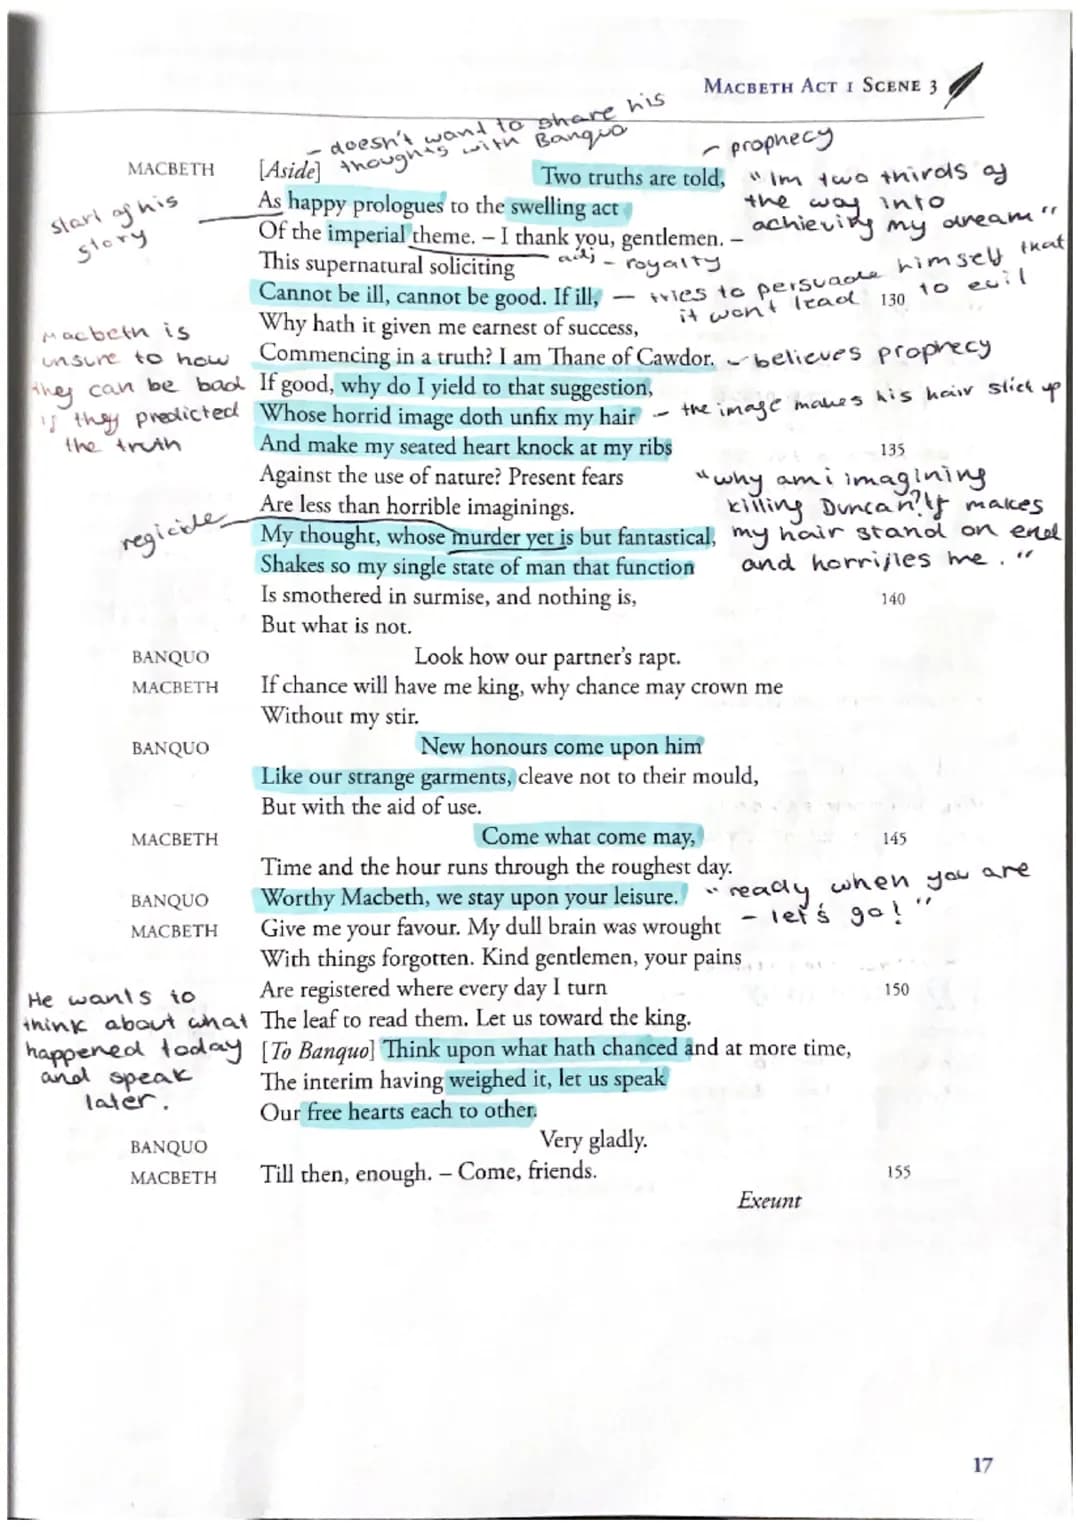 MACBETH ACT 1 SCENE 3
- doesn't want to share his
thoughts with Banquo
- prophecy
MACBETH [Aside] Two truths are told, "Im two thirds of
the way into
achieving my dream"
start of his
story
As happy prologues to the swelling act
Of the imperial theme. – I thank you, gentlemen. –
adj - royalty
This supernatural soliciting
Cannot be ill, cannot be good. If ill, - tries to persuade himself that
it wont lead to evil
130
Why hath it given me earnest of success,
Commencing in a truth? I am Thane of Cawdor. - believes prophecy
Macbeth is
unsure to how
they can be bad
if they predicted
the truth
If good, why do I yield to that suggestion,
Whose horrid image doth unfix my hair - the image makes his hair stick up
And make my seated heart knock at my ribs 135
Against the use of nature? Present fears
Are less than horrible imaginings.
"why am i imagining
killing Duncan? It makes
my hair stand on end
and horrifies me."
regicide
My thought, whose murder yet is but fantastical,
Shakes so my single state of man that function
Is smothered in surmise, and nothing is, 140
But what is not.
BANQUO Look how our partner's rapt.
MACBETH If chance will have me king, why chance may crown me
Without my stir.
BANQUO New honours come upon him
Like our strange garments, cleave not to their mould,
But with the aid of use.
MACBETH Come what come may, 145
Time and the hour runs through the roughest day.
BANQUO Worthy Macbeth, we stay upon your leisure. "ready when you are
- let's go!"
MACBETH Give me your favour. My dull brain was wrought
With things forgotten. Kind gentlemen, your pains
Are registered where every day I turn 150
The leaf to read them. Let us toward the king.
He wants to
think about what
happened today
and speak
later.
[To Banquo] Think upon what hath chanced and at more time,
The interim having weighed it, let us speak
Our free hearts each to other.
BANQUO Very gladly.
MACBETH Till then, enough. – Come, friends. 155
Exeunt
17